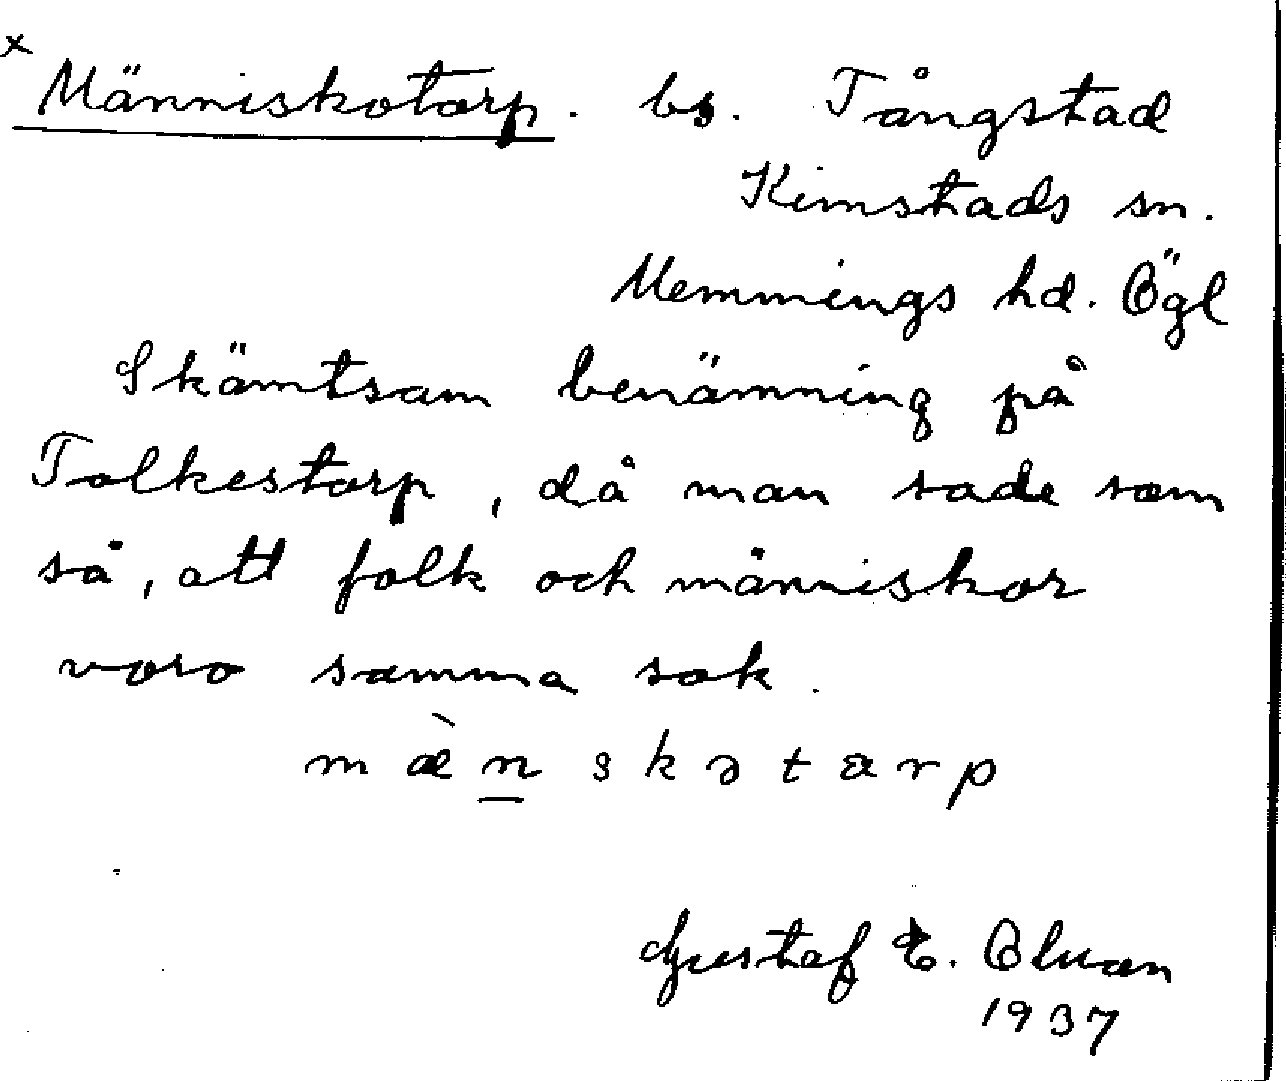 x
Människotorp. bs. Tångstad
Kimstads sn.
Memmings hd. Ögl
Skämtsam benämning på
Tolkestorp, då man sade som
så, att folk och människor
voro samma sak.
mæ̀n̲skətarp
Gustaf E. Olman
1937